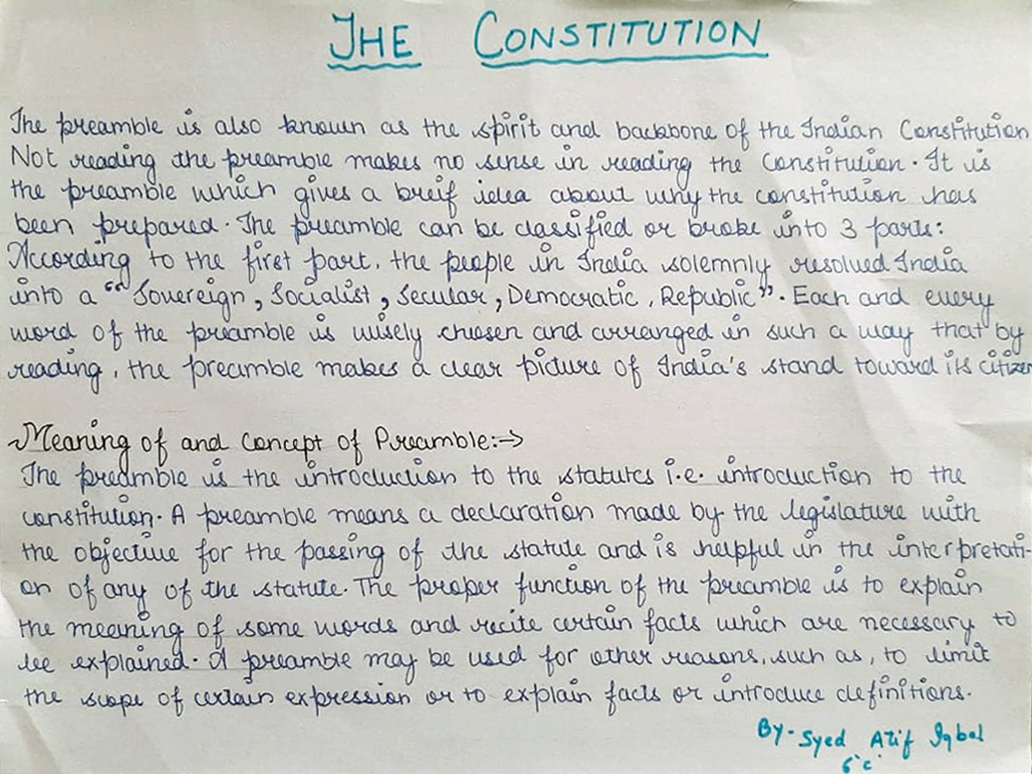 THE CONSTITUTION
The preamble is also known as the spirit and backbone of the Indian Constitution
Not reading the preamble makes no sense in reading the Constitution. It is
the preamble which gives a breif idea about why the constitution has
been prepared. The preamble can be classified or broke into 3 parts:
According to the first part, the people in India solemnly resolved India
into a "Sovereign, Socialist, Secular, Democratic, Republic". Each and every
word of the preamble is wisely chosen and arranged in such a way that by
reading, the preamble makes a clear picture of India's stand toward its citizen
Meaning of and Concept of Preamble:->
The preamble is the introduction to the statutes i.e. introduction to the
constitution. A preamble means a declaration made by the legislature with
the objective for the passing of the statute and is helpful in the interpretati-
on of any of the statute. The proper function of the preamble is to explain
the meaning of some words and recite certain facts which are necessary to
be explained. A preamble may be used for other reasons, such as, to limit
the scope of certain expression or to explain facts or introduce definitions.
By- Syed Atif Iqbal
6'c'